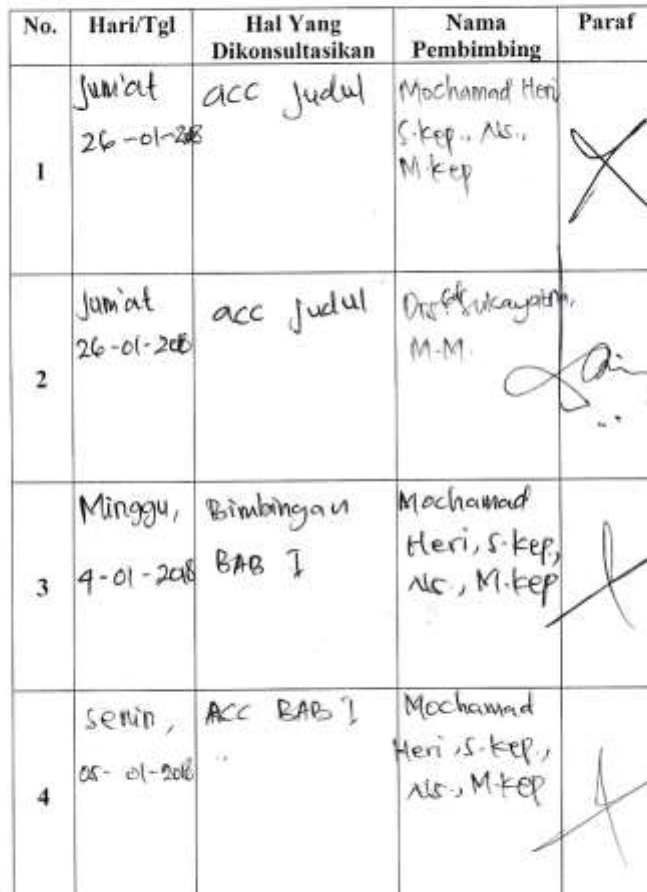 No. Hari/Tgl Hal Yang Dikonsultasikan Nama Pembimbing Paraf
1 Jum'at 26-01-2018 acc Judul Mochamad Heri S.Kep., Ns., M.Kep
2 Jum'at 26-01-2018 acc Judul M.M.
3 Minggu, 4-01-2018 Bimbingan BAB I Mochamad Heri, S.Kep., Ns., M.Kep
4 Senin, 05-01-2018 ACC BAB I Mochamad Heri, S.Kep., Ns., M.Kep